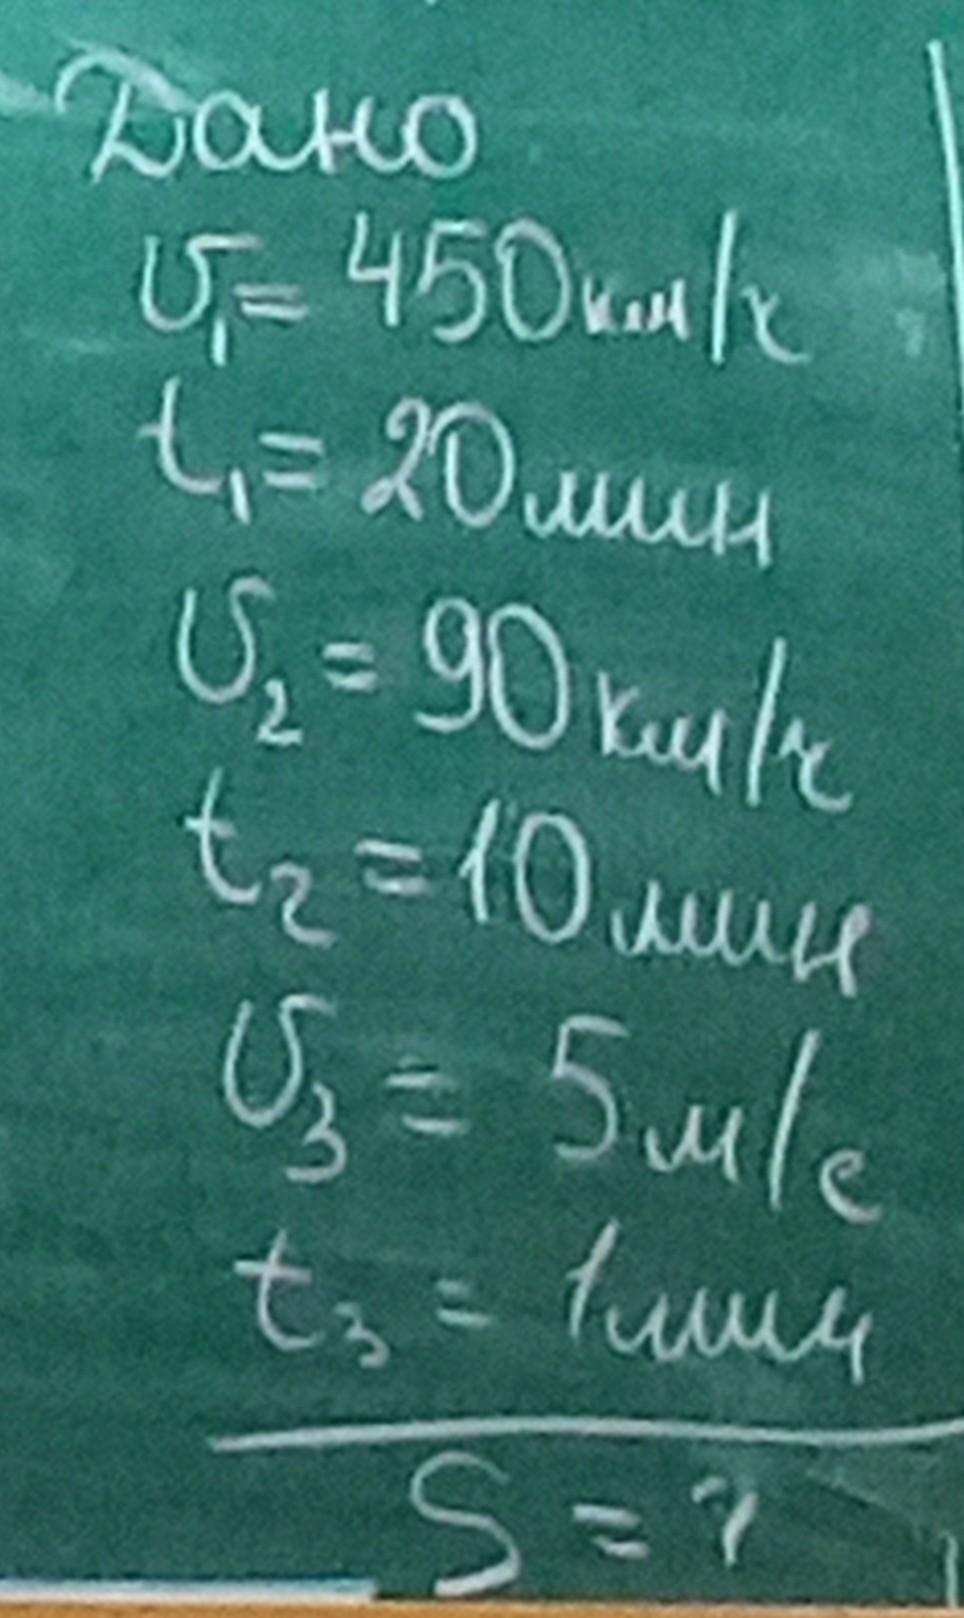 Дано
υ₁= 450км/ч
t₁= 20мин
υ₂ = 90км/ч
t₂ = 10мин
υ₃ = 5м/с
t₃ = 1мин
S = ?